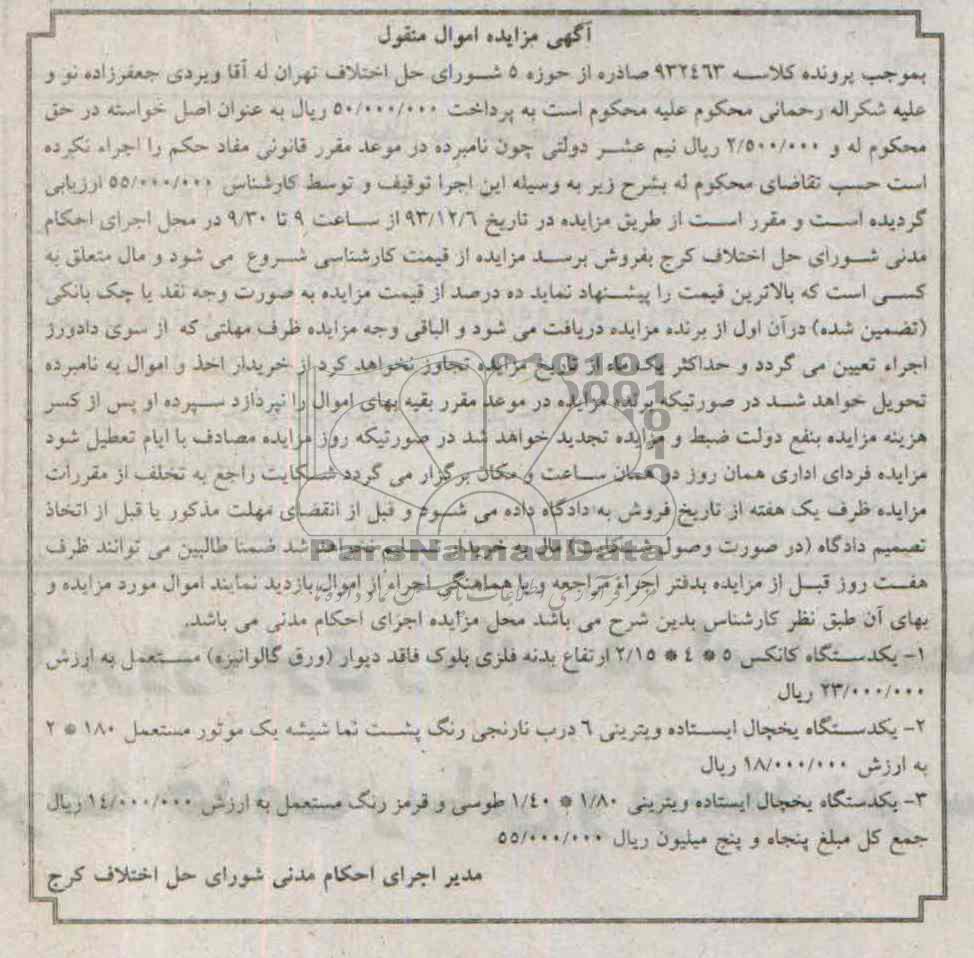 آگهی مزایده اموال منقول
بموجب پرونده کلاسه ۹۳۲٤٦۳ صادره از حوزه ۵ شورای حل اختلاف تهران له آقا ویردی جعفرزاده نو و
علیه شکراله رحمانی محکوم علیه محکوم است به پرداخت ۵۰/۰۰۰/۰۰۰ ریال به عنوان اصل خواسته در حق
محکوم له و ۲/۵۰۰/۰۰۰ ریال نیم عشر دولتی چون نامبرده در موعد مقرر قانونی مفاد حکم را اجراء نکرده
است حسب تقاضای محکوم له بشرح زیر به وسیله این اجرا توقیف و توسط کارشناس ۵۵/۰۰۰/۰۰۰ ارزیابی
گردیده است و مقرر است از طریق مزایده در تاریخ ۹۳/۱۲/٦ از ساعت ۹ تا ۹/۳۰ در محل اجرای احکام
مدنی شورای حل اختلاف کرج بفروش برسد مزایده از قیمت کارشناسی شروع می شود و مال متعلق به
کسی است که بالاترین قیمت را پیشنهاد نماید ده درصد از قیمت مزایده به صورت وجه نقد یا چک بانکی
(تضمین شده) درآن اول از برنده مزایده دریافت می شود و الباقی وجه مزایده ظرف مهلتی که از سوی دادورز
اجراء تعیین می گردد و حداکثر یک ماه از تاریخ مزایده تجاوز نخواهد کرد از خریدار اخذ و اموال به نامبرده
تحویل خواهد شد در صورتیکه برنده مزایده در موعد مقرر بقیه بهای اموال را نپردازد سپرده او پس از کسر
هزینه مزایده بنفع دولت ضبط و مزایده تجدید خواهد شد در صورتیکه روز مزایده مصادف با ایام تعطیل شود
مزایده فردای اداری همان روز در همان ساعت و مکان برگزار می گردد شکایت راجع به تخلف از مقررات
مزایده ظرف یک هفته از تاریخ فروش به دادگاه داده می شود و قبل از انقضای مهلت مذکور یا قبل از اتخاذ
تصمیم دادگاه (در صورت وصول شکایت) مال به خریدار تسلیم نخواهد شد ضمنا طالبین می توانند ظرف
ParsNamadData
هفت روز قبل از مزایده بدفتر اجراء مراجعه و با هماهنگی اجراء از اموال بازدید نمایند اموال مورد مزایده و
بهای آن طبق نظر کارشناس بدین شرح می باشد محل مزایده اجرای احکام مدنی می باشد.
۱- یکدستگاه کانکس ۵ * ٤ * ۲/۱۵ ارتفاع بدنه فلزی بلوک فاقد دیوار (ورق گالوانیزه) مستعمل به ارزش
۲۳/۰۰۰/۰۰۰ ریال
۲- یکدستگاه یخچال ایستاده ویترینی ٦ درب نارنجی رنگ پشت نما شیشه یک موتور مستعمل ۱۸۰ * ۲
به ارزش ۱۸/۰۰۰/۰۰۰ ریال
۳- یکدستگاه یخچال ایستاده ویترینی ۱/۸۰ * ۱/٤۰ طوسی و قرمز رنگ مستعمل به ارزش ۱٤/۰۰۰/۰۰۰ ریال
جمع کل مبلغ پنجاه و پنج میلیون ریال ۵۵/۰۰۰/۰۰۰
مدیر اجرای احکام مدنی شورای حل اختلاف کرج